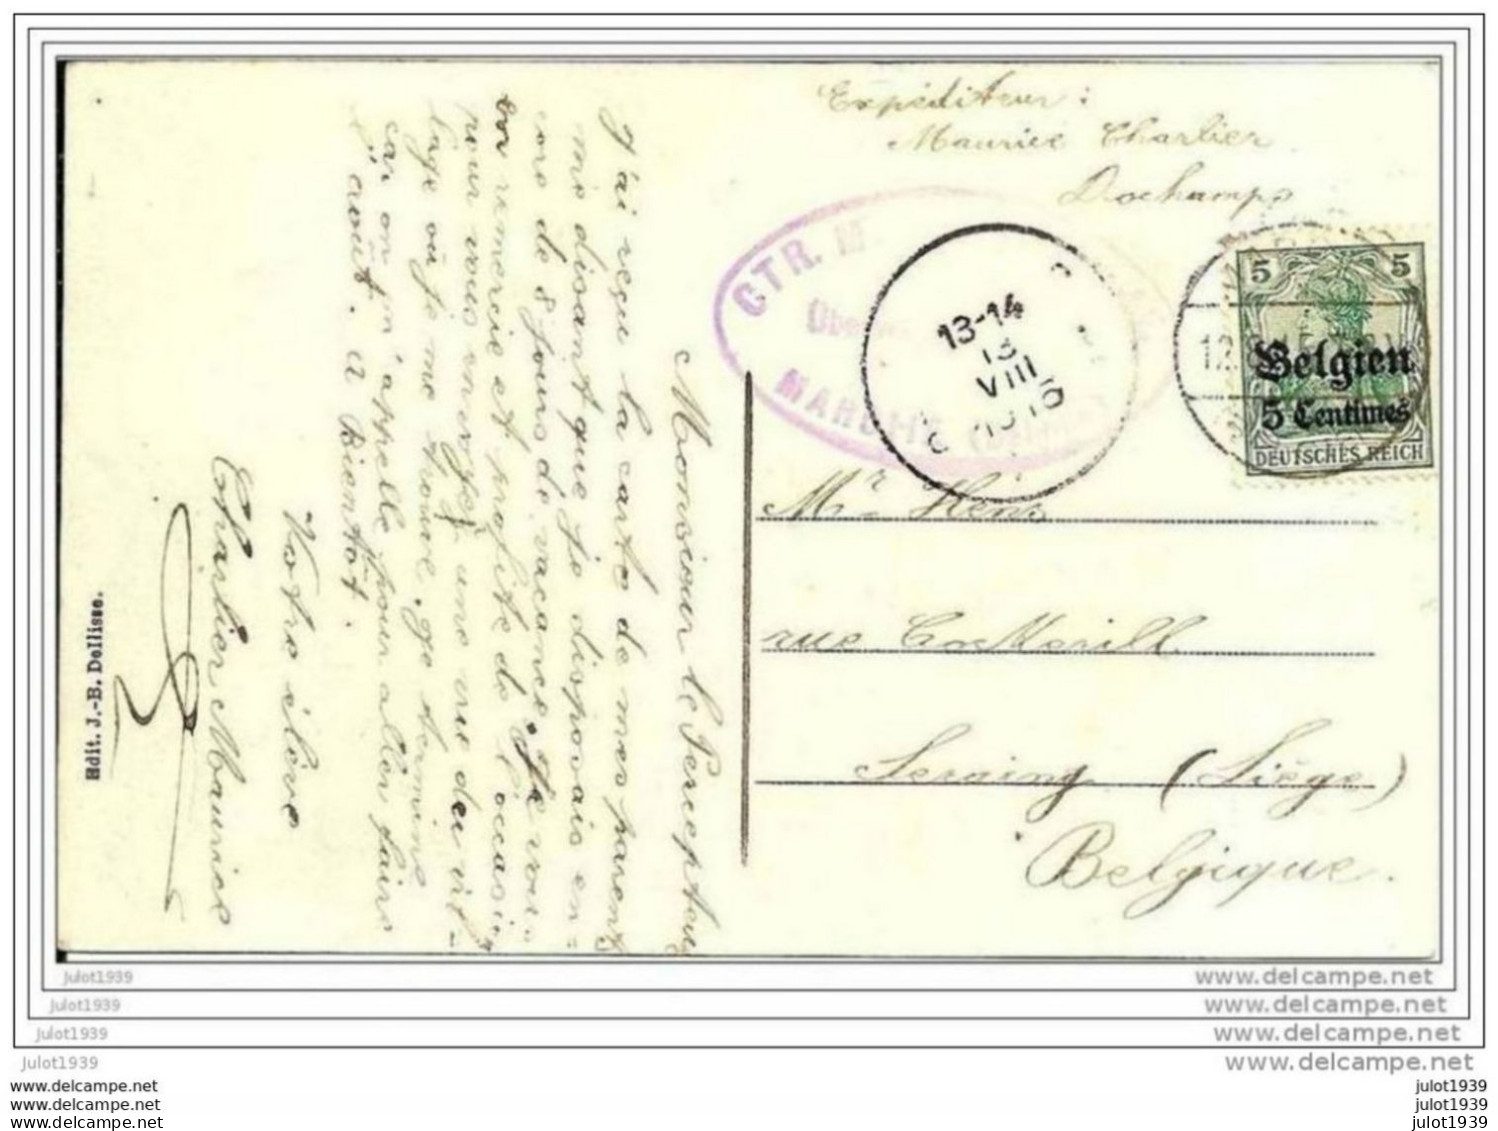 Expéditeur :
Maurice Charlier
Dochamps
5 5
Belgien
5 Centimes
DEUTSCHES REICH
12.
CTR. M
Übe
MARCHE (Belgien)
13-14
13
VIII
Mr Hénz
rue Cockerill
Seraing (Liége)
Belgique.
Monsieur le Percepteur
J'ai reçu la carte de mes parents
me disant que je disposais en=
core de 8 jours de vacance. Je vous
en remercie et profite de l'occasion
pour vous envoyer une vue du vil-
lage où je me trouve. Je termine
car on m'appelle pour aller faire
l'août. A Bientôt.
Votre élève
Charlier Maurice
Edit. J.-B. Dellisse.
julot1939
www.delcampe.net
julot1939
www.delcampe.net
julot1939
www.delcampe.net
julot1939
www.delcampe.net
www.delcampe.net
julot1939
www.delcampe.net
julot1939
www.delcampe.net
julot1939